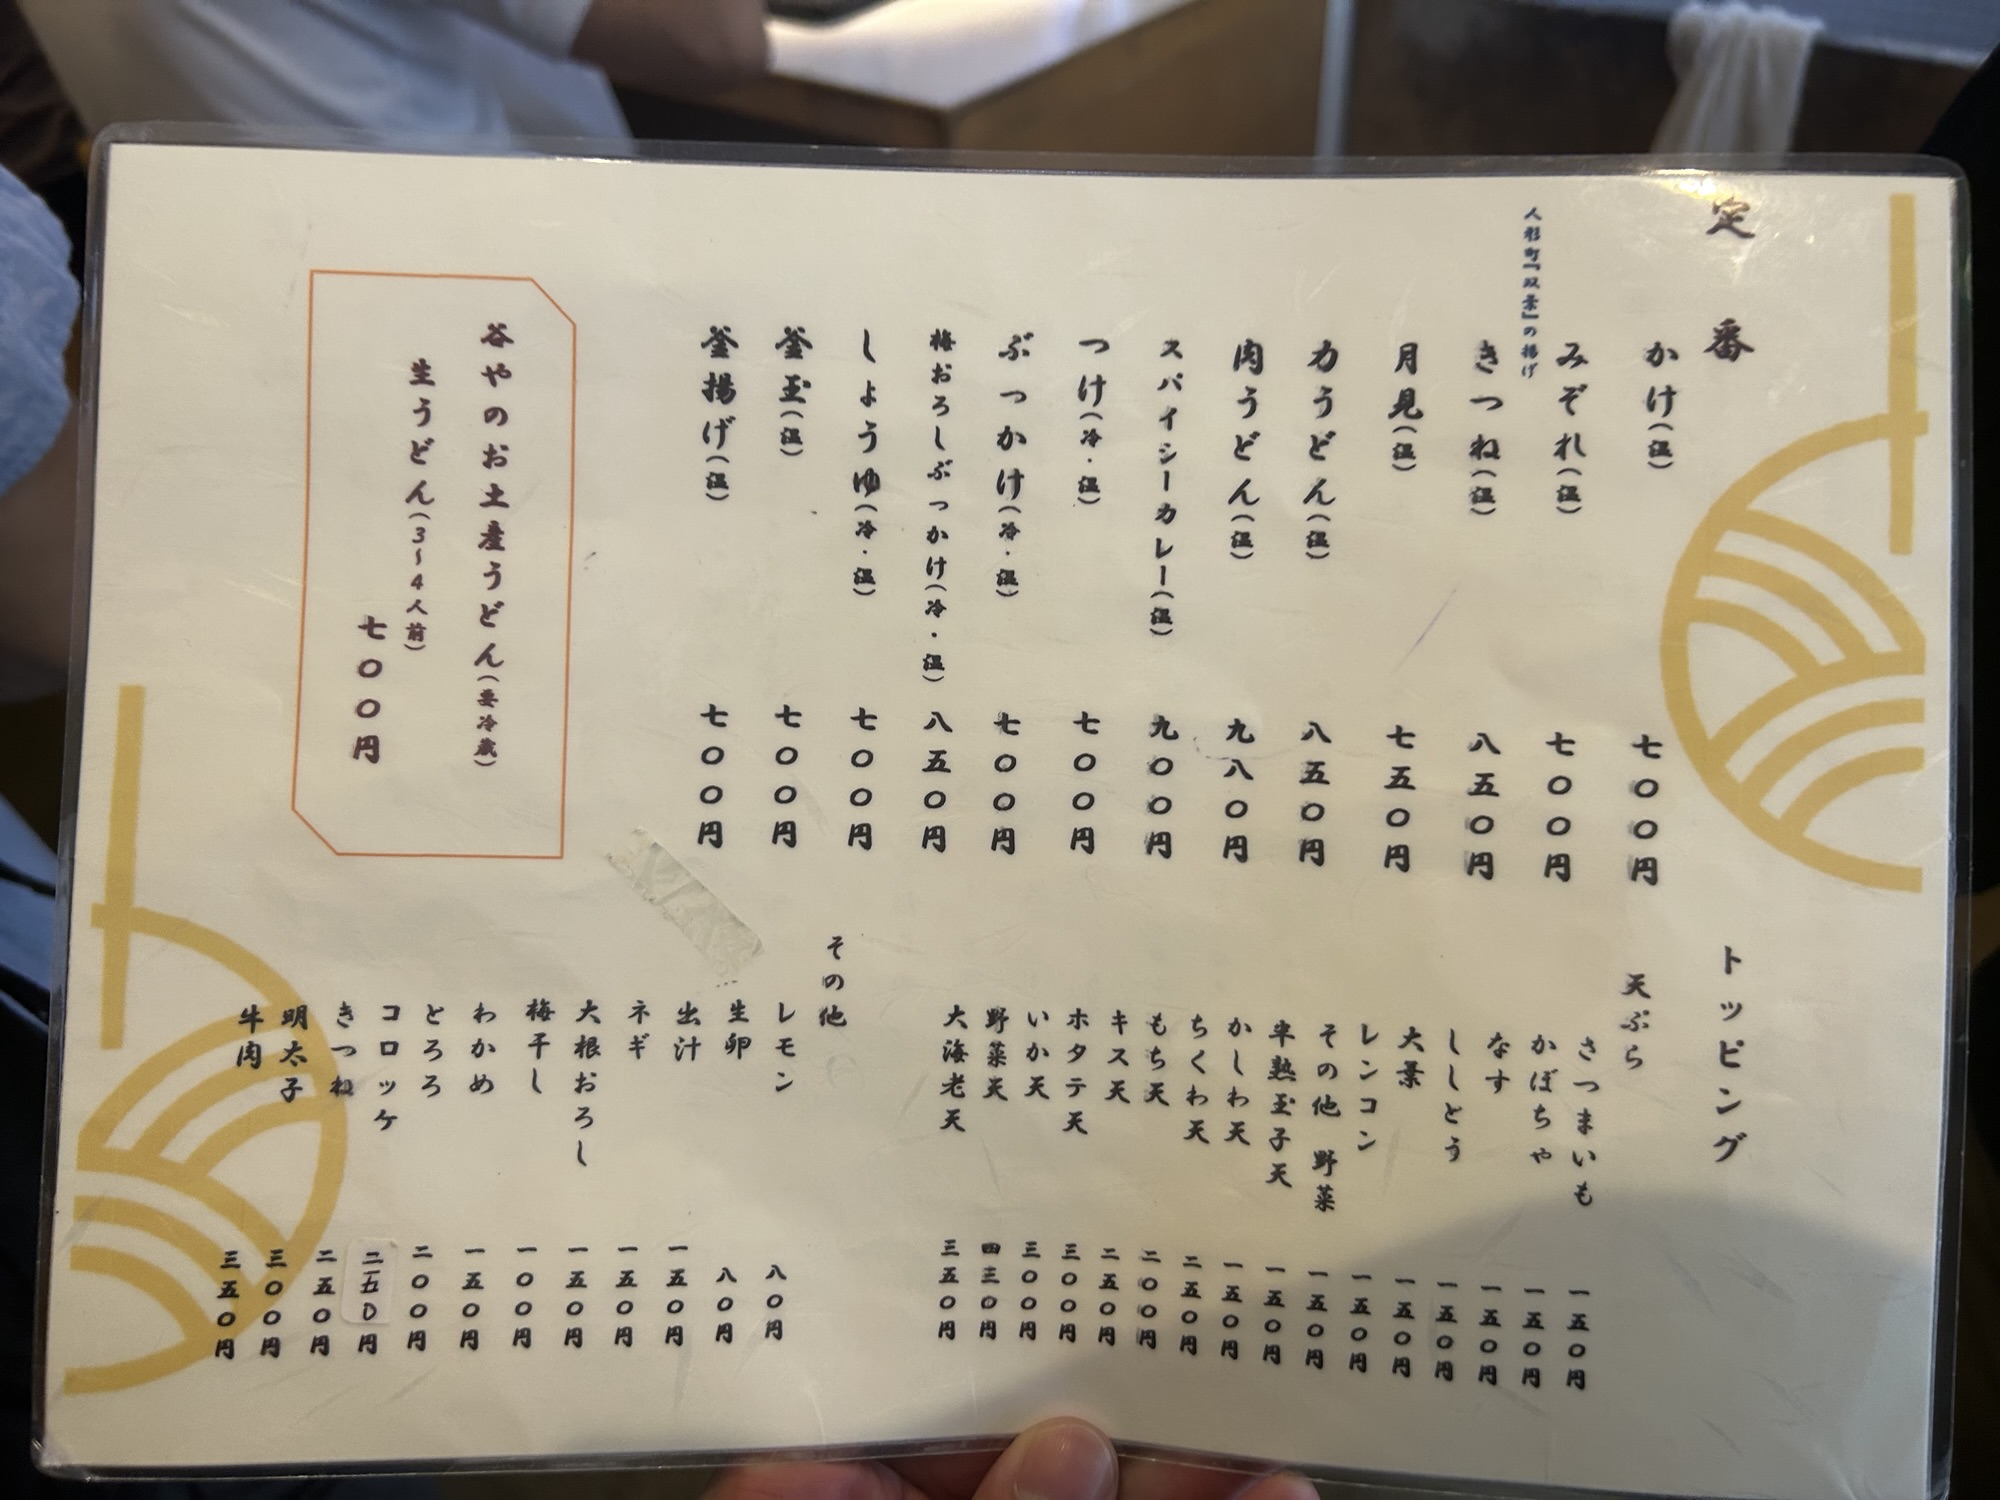 定番
かけ(温) 七〇〇円
みぞれ(温) 七〇〇円
人形町「双葉」の揚げ
きつね(温) 八五〇円
月見(温) 七五〇円
力うどん(温) 八五〇円
肉うどん(温) 九八〇円
スパイシーカレー(温) 九〇〇円
つけ(冷・温) 七〇〇円
ぶっかけ(冷・温) 七〇〇円
梅おろしぶっかけ(冷・温) 八五〇円
しょうゆ(冷・温) 七〇〇円
釜玉(温) 七〇〇円
釜揚げ(温) 七〇〇円
谷やのお土産うどん(要冷蔵)
生うどん(3〜4人前)
七〇〇円
トッピング
天ぷら
さつまいも 一五〇円
かぼちゃ 一五〇円
なす 一五〇円
ししとう 一五〇円
大葉 一五〇円
レンコン 一五〇円
その他 野菜 一五〇円
半熟玉子天 一五〇円
かしわ天 一五〇円
ちくわ天 二五〇円
もち天 二〇〇円
キス天 二五〇円
ホタテ天 三〇〇円
いか天 三〇〇円
野菜天 四三〇円
大海老天 三五〇円
その他
レモン 八〇円
生卵 八〇円
出汁 一五〇円
ネギ 一五〇円
大根おろし 一五〇円
梅干し 一〇〇円
わかめ 一五〇円
とろろ 二〇〇円
コロッケ 二五〇円
きつね 二五〇円
明太子 三〇〇円
牛肉 三五〇円